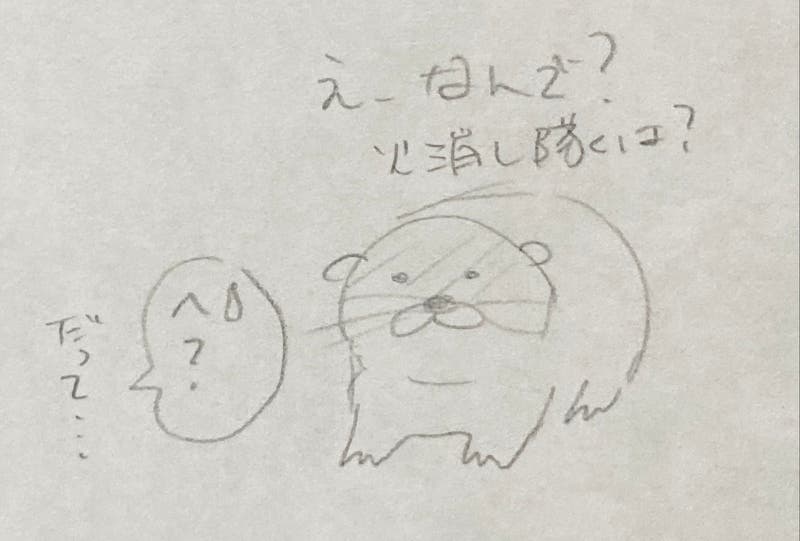 えー なんで?
火消し隊くは?
ヘロ
?
だって…